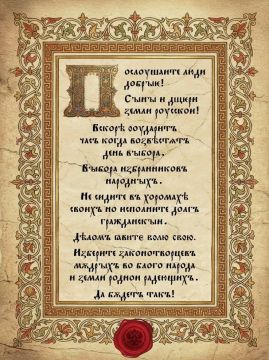 Послоушаите люди
добрыи!
Сыны и дщери
земли роусскои!
Вскорѣ ооударитъ
часъ когда возвѣстятъ
день выбора.
Выбора избранниковъ
народныхъ.
Не сидите въ хоромахъ
своихъ но исполните долгъ
гражданскыи.
Дѣломъ ꙗвите волю свою.
Изберите законотворцевъ
мѫдрыхъ во благо народа
и земли роднои радеющихъ.
Да бѫдетъ такъ!